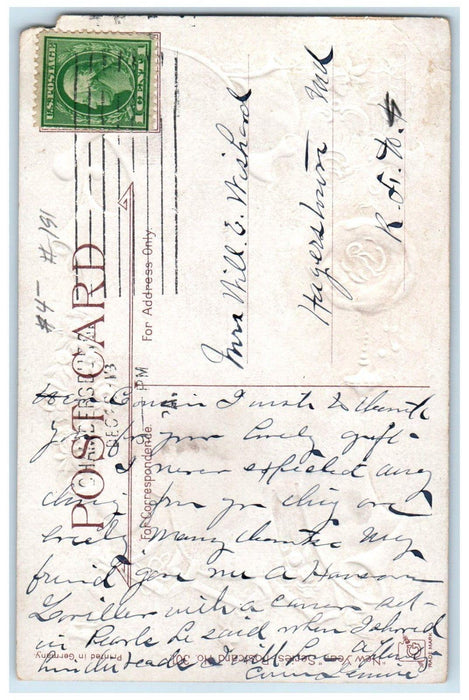 U.S. POSTAGE
1 CENT 1
#4- #191
POST CARD
CHAMBERSBURG
DEC 13
PM
For Address Only.
For Correspondence.
Mrs Will E. Wishard
Hagerstown Md
R. F. D. 4
Dear Cousin I wish to thank
you for your lovely gift.
I never expected any
thing from you they are
lovely many thanks My
friend gave me a Handsom
Lavillier with a cameo set
in Pearls he said when I showed
"New Year" Series Postcard No. 301
Printed in Germany
TRADE MARK